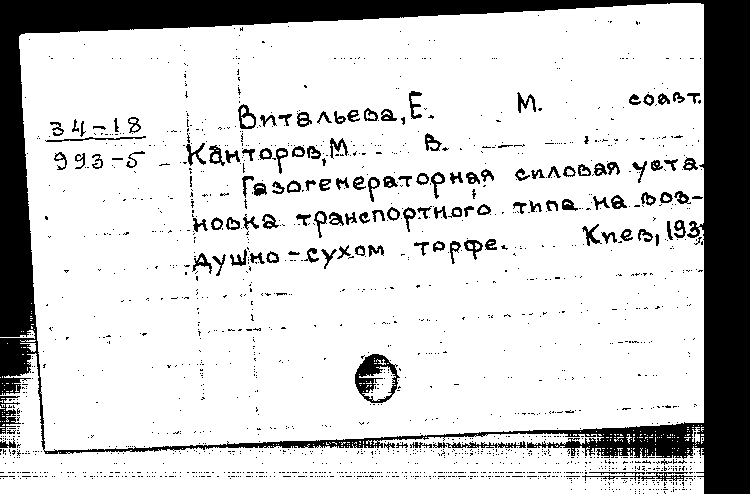 Витальева, Е. М. соавт.
34-18
993-5
Канторов, М. В.
Газогенераторная силовая уста-
новка транспортного типа на воз-
душно-сухом торфе. Киев, 193